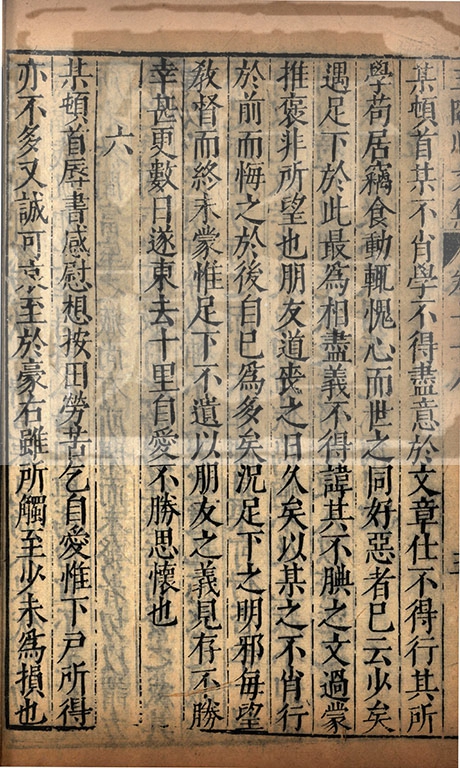 某頓首某不肖學不得盡意於文章仕不得行其所
學苟居竊食動輒愧心而世之同好惡者已云少矣
遇足下於此最為相盡義不得諱其不腆之文過蒙
推褒非所望也朋友道喪之日久矣以某之不肖行
於前而悔之於後自已為多矣況足下之明邪每望
敎督而終未蒙惟足下不遺以朋友之義見存不勝
幸甚更數日遂東去十里自愛不勝思懷也
六
某頓首辱書感慰想按田勞苦乞自愛惟下戸所得
亦不多又誠可哀至於豪右雖所觸至少未為損也